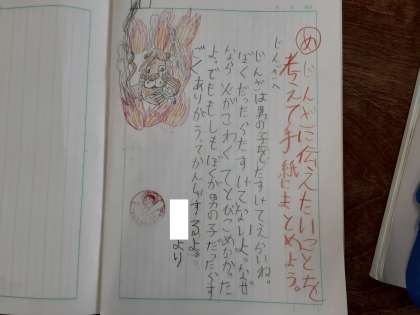 め じんざに伝えたいことを
考えて手紙にまとめよう。
じんざへ
じんざは男の子をたすけてえらいね。
ぼくだったらたすけてないよ。なぜ
なら火がこわくてとびこめなかった
よ。でももしもぼくが男の子だったらす
ごくありがとうてかんしゃするよ。
より